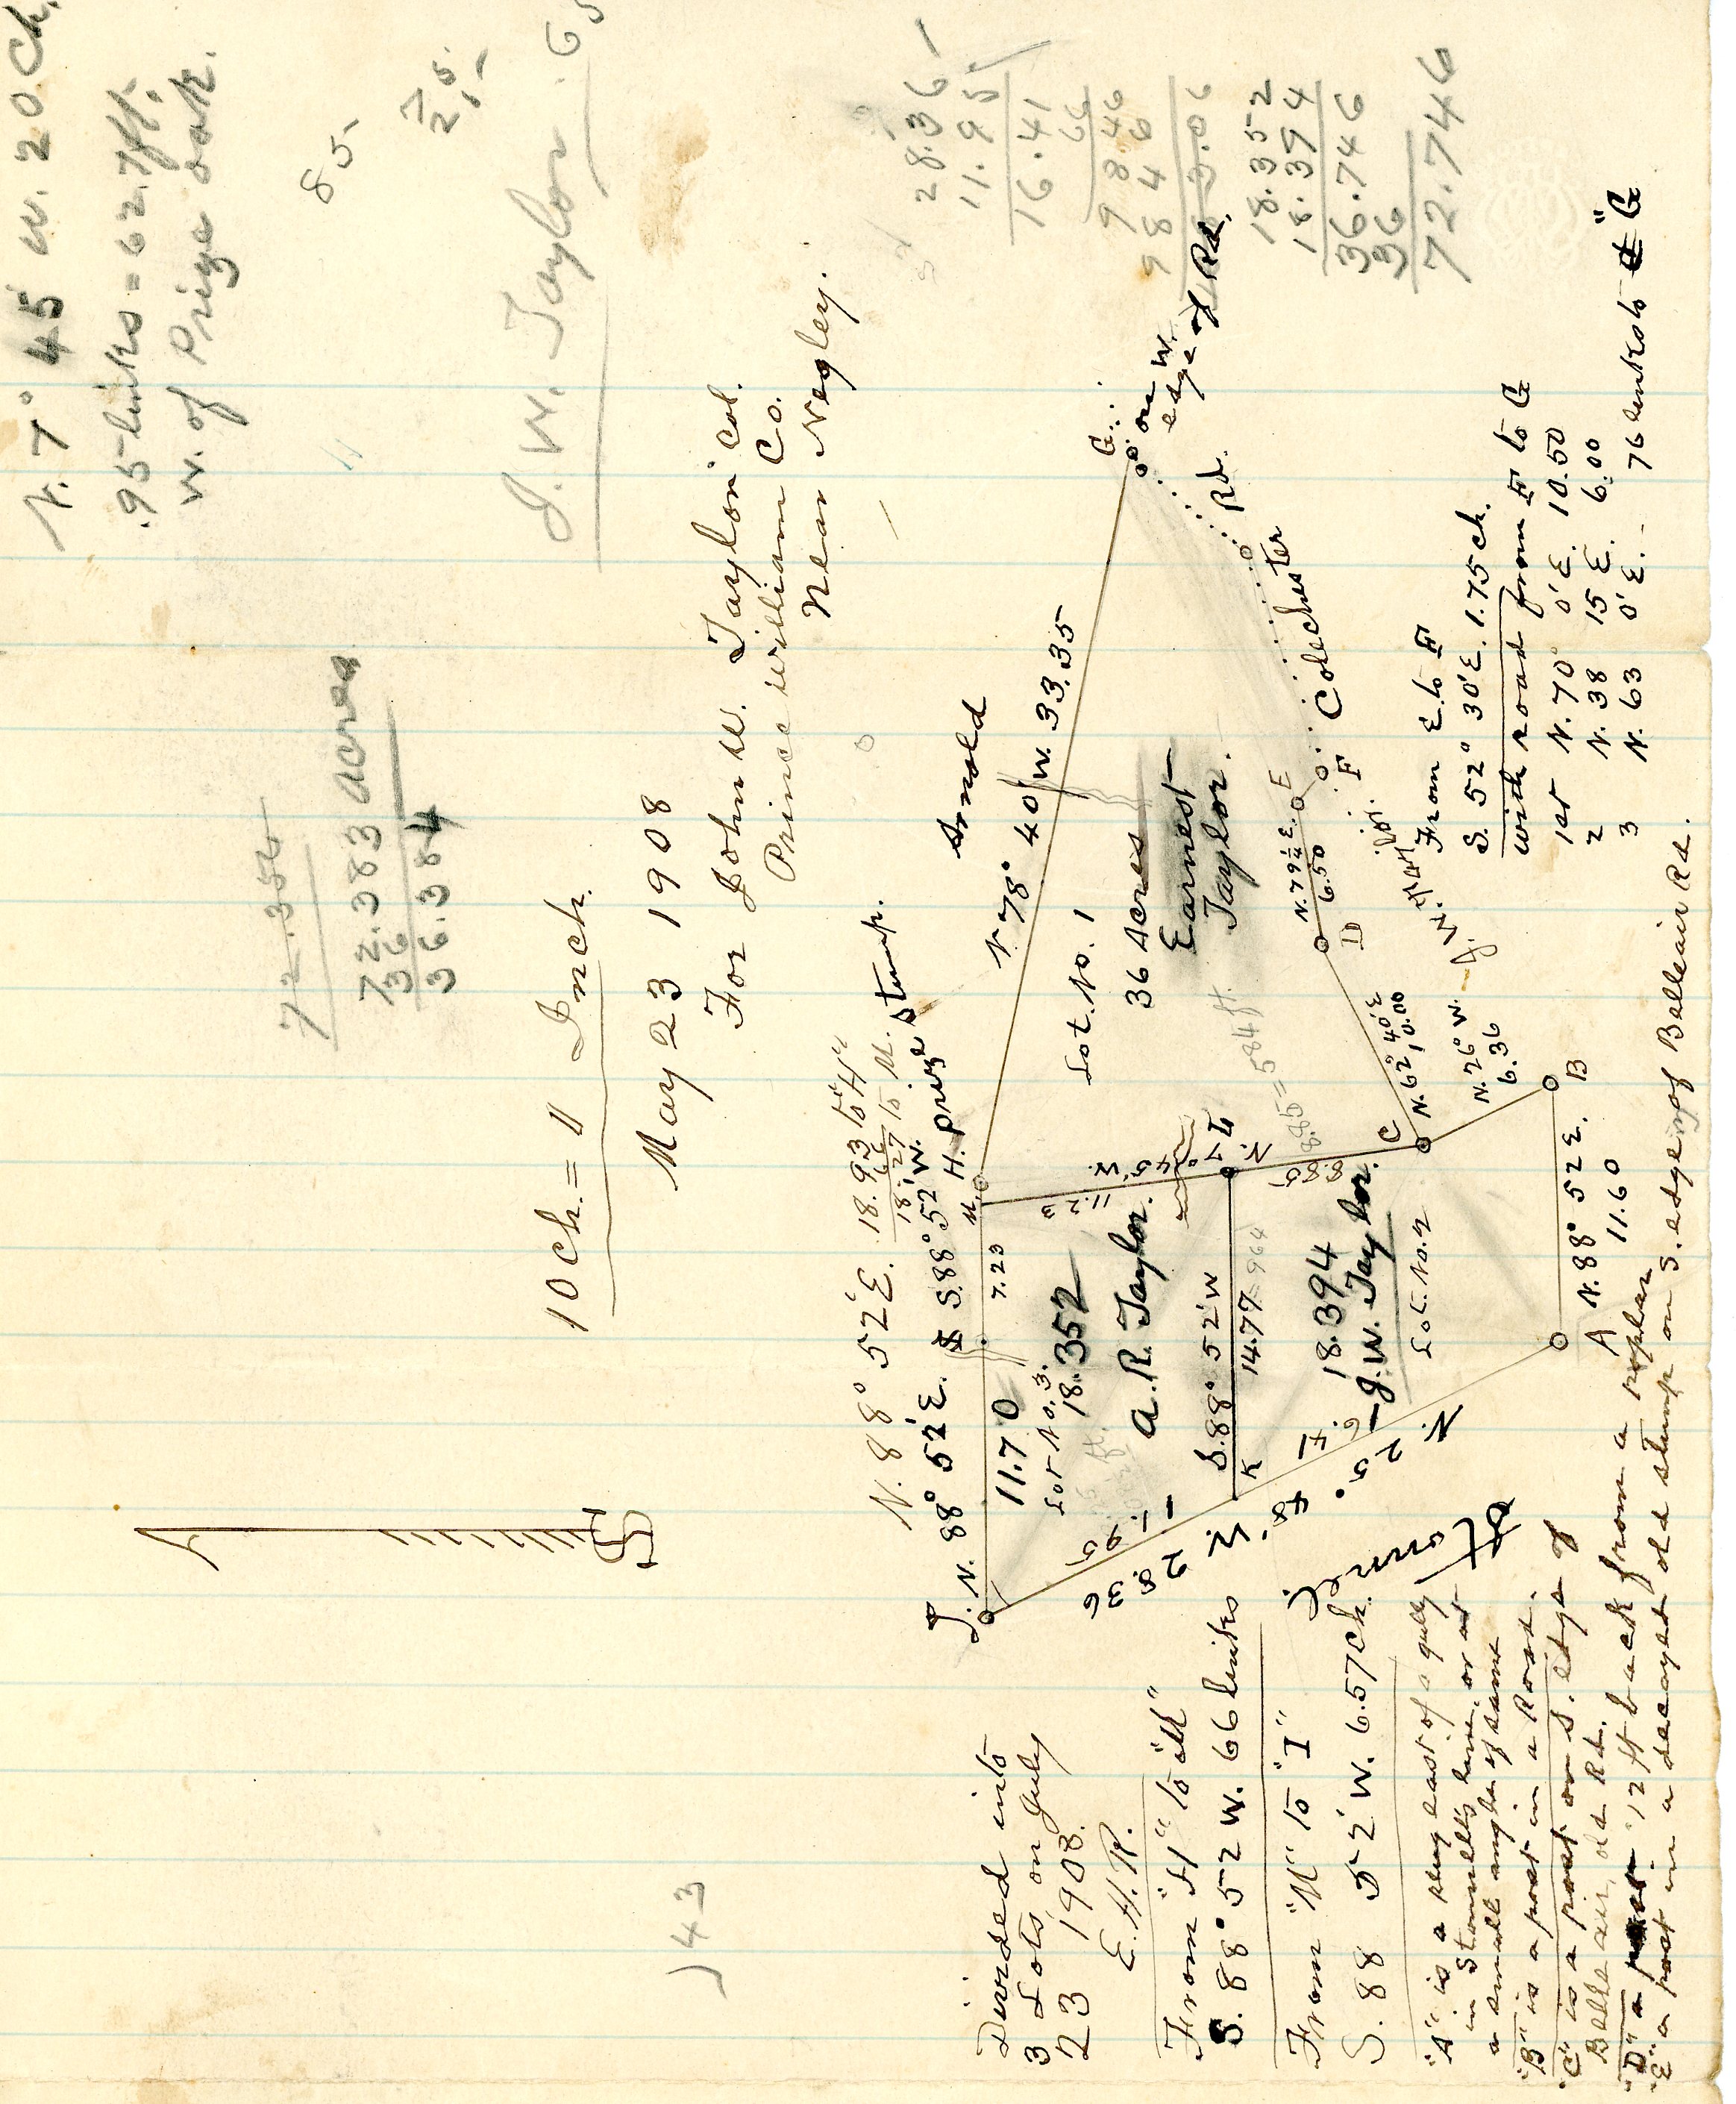 N. 7° 45' W. 20 Ch.
.95 links = 62.7 ft.
W. of Prize oak.
85
J. W. Taylor
72.384
72.383 acres
36
36.384
10 Ch. = 1 Inch.
May 23 1908
For John W. Taylor col.
Prince William Co.
Near Negley.
28.36
11.95
16.41
66
98.46
984 6
18.352
18.394
36.746
36
72.746
)43
N. 88° 52' E. 18.93 to "H"
66
18.27 to M.
N. 88° 52' E. S. 88° 52' W. H. prize stump.
Arnold
J.
11.70
7.23
M.
N. 78° 40' W. 33.35
G.
on W.
edge of Rd.
Lot No. 3.
18.352
A. R. Taylor.
Lot No. 1
36 Acres
Earnest
Taylor.
11.95
28.36
11.23
N. 7° 45' W.
L
S. 88° 52' W
14.77
K
8.85
8.85 = 584 ft.
18.394
J. W. Taylor.
Lot No. 2
N. 25°
C
N. 62° 40' E
10.00
D
N. 79½ E.
6.50
E
F
Colechester Rd.
N. 26° W.
6.36
B
A
N. 88° 52 E.
11.60
From E. to F
S. 52° 30' E. 1.75 ch.
with road from F to G
1st N. 70° 0' E. 10.50
2 N. 38 15 E. 6.00
3 N. 63 0' E. - 76 links to "G
Divided into
3 Lots on July
23 1908.
E. H. R.
From "H" to "M"
S. 88° 52 W. 66 links
From "M" to "I"
S. 88 52' W. 6.57 Ch.
"A" is a plug east of a gully
in Stonnells line, or at
a small angle of same
"B" is a post in a Road.
"C" is a post on S. edge of
Belleair, old Rd.
"D" a post 12 ft back from a
"E" a post in a decayed old stump on S. edge of Belleair Rd.